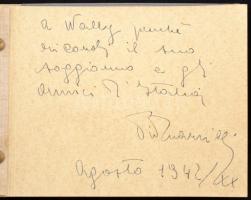 a Wally perché
ricordi il suo
soggiorno e gli
amici d'Italia
Agosto 1942/XX